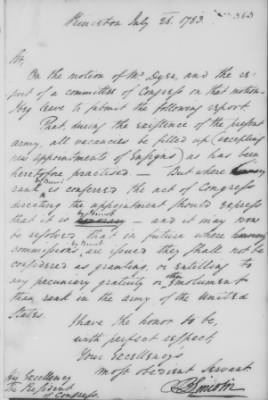 Princeton July 26. 1783. 363
Sir,
On the motion of Mr Dyer, and the re-
port of a committee of Congress on that motion
I beg leave to submit the following report
That, during the existence of the present
army, all vacancies be filled up (excepting
new appointments of Ensigns) as has been
heretofore practised — But where honorary
by Brevet
rank is conferred the act of Congress
directing the appointment should express
by Brevet
that it is honorary — and it may now
be resolved that in future where honorary
by Brevet
commissions, are issued they shall not be
considered as granting, or entitling to
any pecuniary gratuity or emolument
than rank in the army of the United
States.
I have the honor to be,
with perfect respect,
Your Excellency's
most obedient servant
B Lincoln
His Excellency
The President
of Congress.